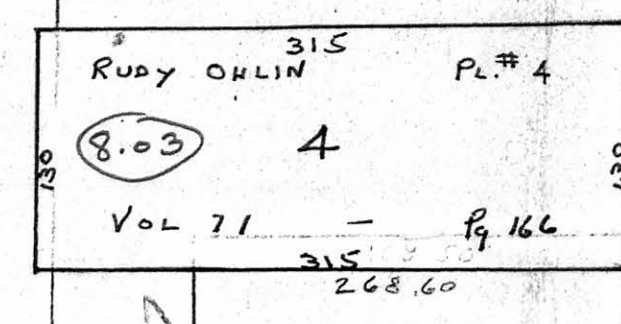 315
RUDY OHLIN PL.# 4
8.03 4
130 130
VOL 71 — Pg 166
315
268.60